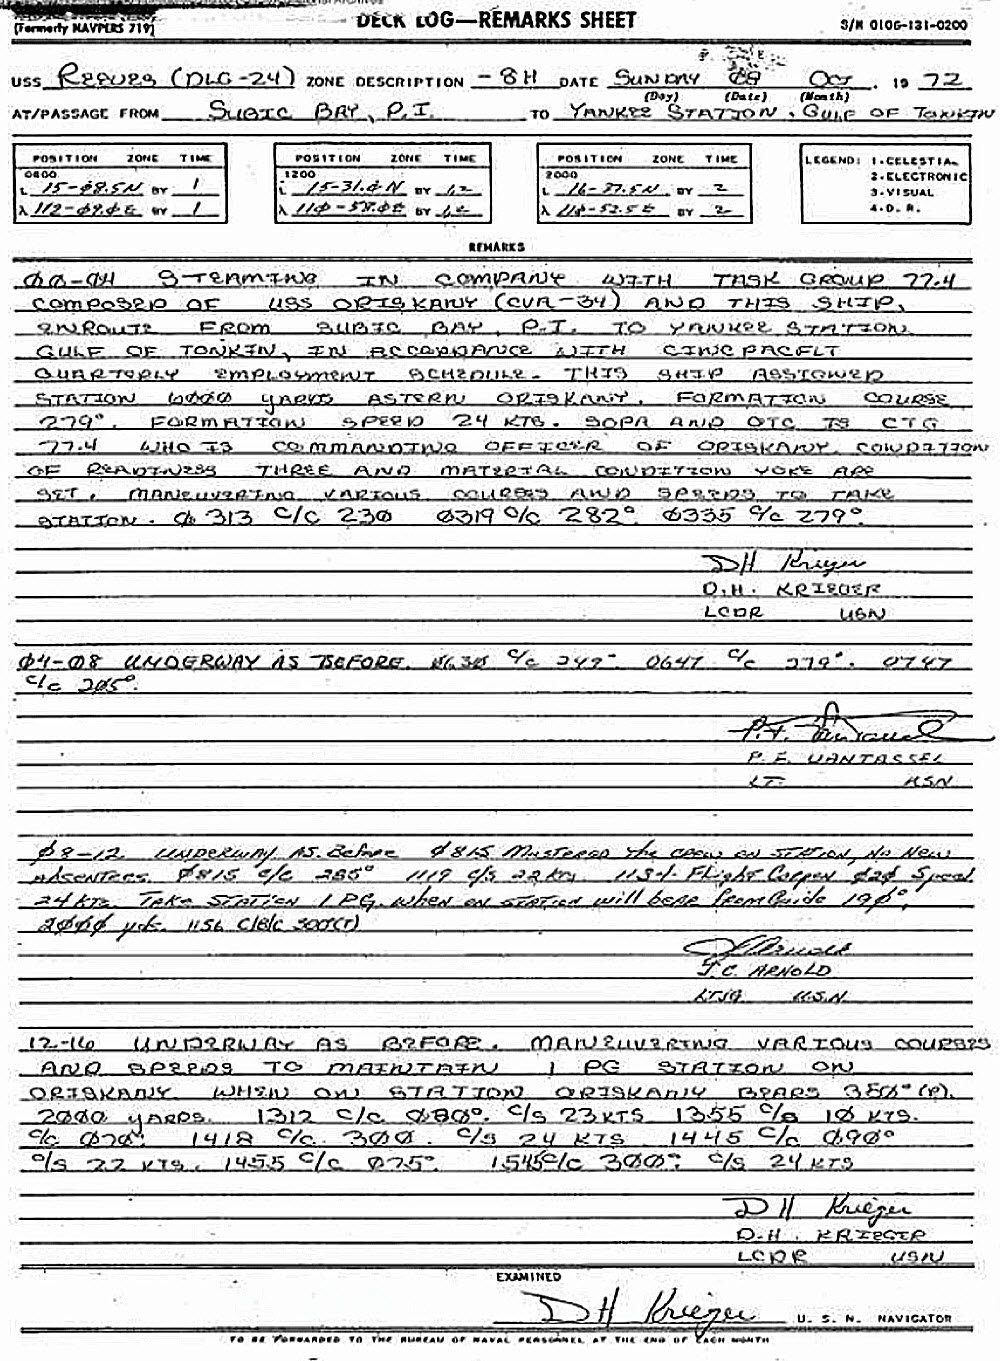 (Formerly NAVPERS 719)
DECK LOG—REMARKS SHEET
S/N 0106-131-0200
USS REEVES (DLG-24) ZONE DESCRIPTION -8H DATE SUNDAY Ø8 OCT. 19 72
(Day) (Date) (Month)
AT/PASSAGE FROM SUBIC BAY, P.I. TO YANKEE STATION, GULF OF TONKIN
POSITION ZONE TIME
0800
L 15-Ø8.5N BY 1
λ 112-Ø9.ØE BY 1
POSITION ZONE TIME
1200
L 15-31.ØN BY 1,2
λ 11Ø-58.ØE BY 1,2
POSITION ZONE TIME
2000
L 16-27.5N BY 2
λ 11Ø-52.5E BY 2
LEGEND: 1-CELESTIAL
2-ELECTRONIC
3-VISUAL
4-D. R.
REMARKS
ØØ-Ø4 STEAMING IN COMPANY WITH TASK GROUP 77.4
COMPOSED OF USS ORISKANY (CVA-34) AND THIS SHIP,
ENROUTE FROM SUBIC BAY, P.I. TO YANKEE STATION
GULF OF TONKIN, IN ACCORDANCE WITH CINCPACFLT
QUARTERLY EMPLOYMENT SCHEDULE. THIS SHIP ASSIGNED
STATION 6ØØØ YARDS ASTERN ORISKANY. FORMATION COURSE
279°. FORMATION SPEED 24 KTS. SOPA AND OTC IS CTG
77.4 WHO IS COMMANDING OFFICER OF ORISKANY. CONDITION
OF READINESS THREE AND MATERIAL CONDITION YOKE ARE
SET. MANEUVERING VARIOUS COURSES AND SPEEDS TO TAKE
STATION. Ø313 C/C 23Ø Ø319 C/C 282° Ø335 C/C 279°
DH Krieger
D.H. KRIEGER
LCDR USN
Ø4-Ø8 UNDERWAY AS BEFORE. Ø63Ø C/C 249° 0647 C/C 279°. 0747
C/C 285°.
P.F. VANTASSEL
LT. USN
Ø8-12 UNDERWAY AS Before Ø815 Mustered the crew on STATION, No New
Absentees. Ø815 C/C 285° 1119 C/S 22 Kts 1134 Flight Corpen Ø2Ø Speed
24 KTS. TAKE STATION 1 PG. when on station will bear from Guide 19Ø°,
2ØØØ yds. 1156 C/B/C 300(T)
F.C. ARNOLD
LTJG U.S.N.
12-16 UNDERWAY AS BEFORE. MANEUVERING VARIOUS COURSES
AND SPEEDS TO MAINTAIN 1 PG STATION ON
ORISKANY. WHEN ON STATION ORISKANY BEARS 35Ø° (P).
2ØØØ YARDS. 1312 C/C Ø8Ø°. C/S 23 KTS 1355 C/S 1Ø KTS.
C/C Ø7Ø°. 1418 C/C 3ØØ. C/S 24 KTS 1445 C/C Ø9Ø°
C/S 22 KTS. 1455 C/C Ø75° 1545 C/C 3ØØ°. C/S 24 KTS
DH Krieger
D.H. KRIEGER
LCDR USN
EXAMINED
DH Krieger U. S. N. NAVIGATOR
TO BE FORWARDED TO THE BUREAU OF NAVAL PERSONNEL AT THE END OF EACH MONTH